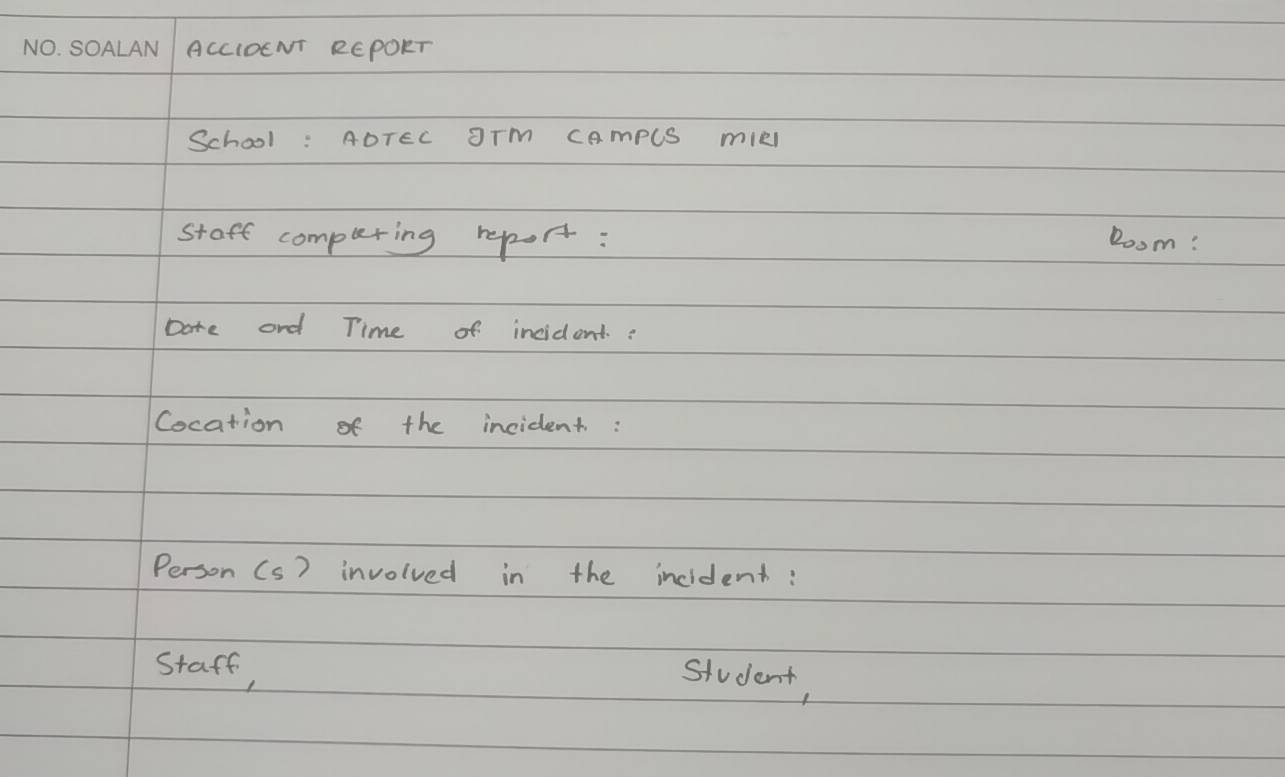 NO. SOALAN ACCIDENT REPORT
School : ADTEC JTM CAMPUS MIRI
Staff completing report : Room :
Date and Time of incident :
Location of the incident :
Person (s) involved in the incident :
Staff, Student,